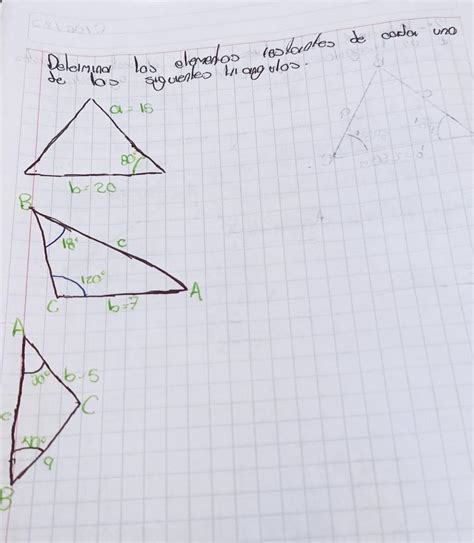 Determinar los elementos restantes de cada uno
de los siguientes triangulos.
a = 15
80°
b = 20
B
18°
c
120°
C
b=7
A
A
30°
b=5
C
c
40°
a
B